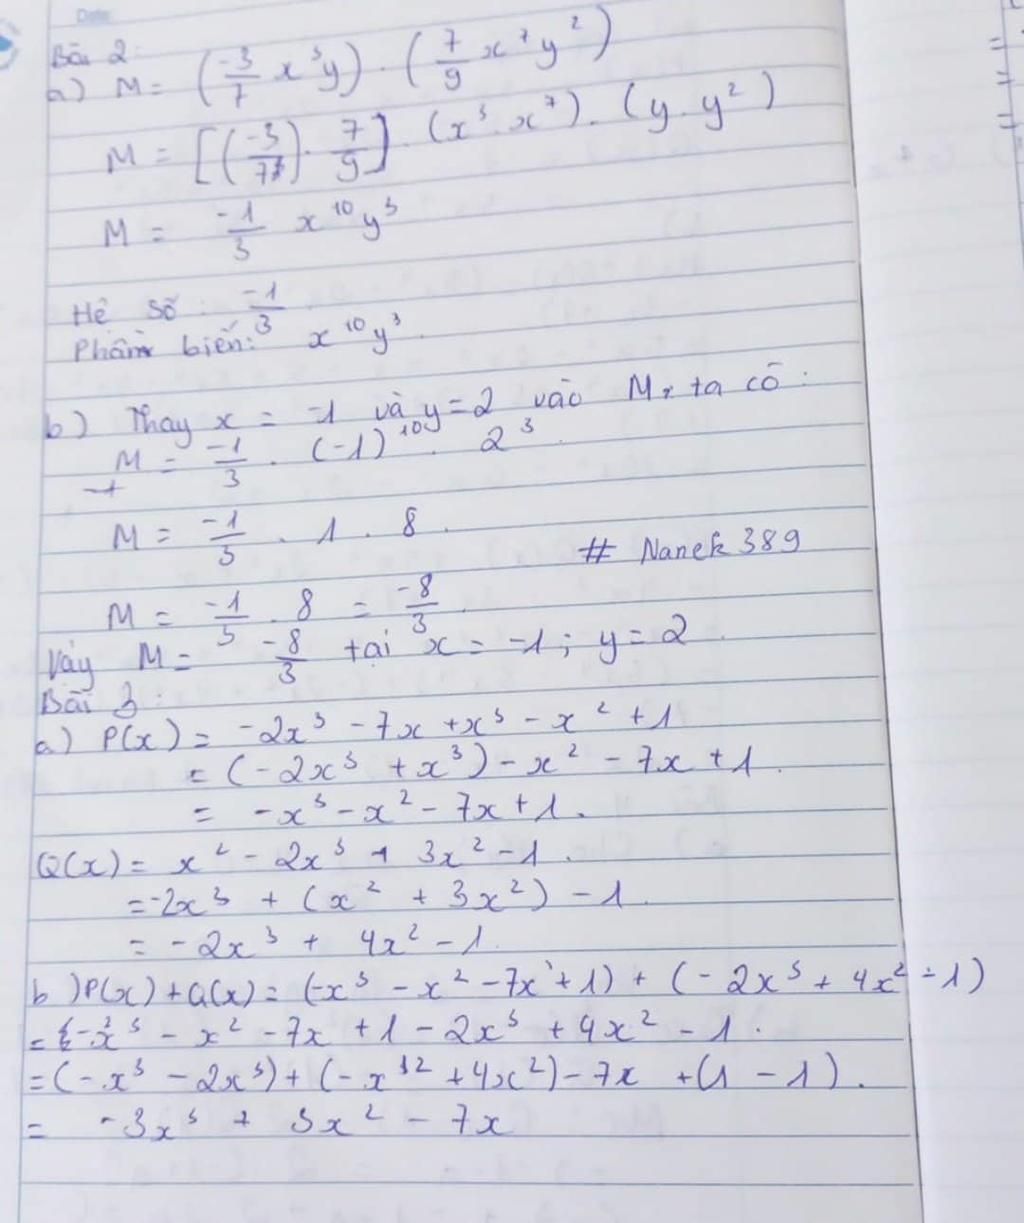 Date:
Bài 2:
a) M = (-3/7 x³y) . (7/9 x⁷y²)
M = [(-3/7) . 7/9] . (x³ . x⁷) . (y . y²)
M = -1/3 x¹⁰y³
Hệ số : -1/3
Phần biến: x¹⁰y³.
b) Thay x = -1 và y = 2 vào M, ta có :
M = -1/3 . (-1)¹⁰ . 2³.
M = -1/3 . 1 . 8.
# Nanek 389
M = -1/3 . 8 = -8/3.
Vậy M = -8/3 tại x = -1 ; y = 2
Bài 3 :
a) P(x) = -2x³ - 7x + x³ - x² + 1
= (-2x³ + x³) - x² - 7x + 1.
= -x³ - x² - 7x + 1.
Q(x) = x² - 2x³ + 3x² - 1.
= -2x³ + (x² + 3x²) - 1.
= -2x³ + 4x² - 1.
b) P(x) + Q(x) = (-x³ - x² - 7x + 1) + (-2x³ + 4x² - 1)
= -x³ - x² - 7x + 1 - 2x³ + 4x² - 1.
= (-x³ - 2x³) + (-x² + 4x²) - 7x + (1 - 1).
= -3x³ + 3x² - 7x